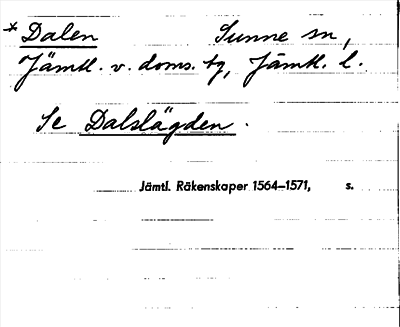 * Dalen Sunne sn,
Jämtl. v. doms. tg, Jämtl. l.
Se Dalslägden.
Jämtl. Räkenskaper 1564–1571, s.